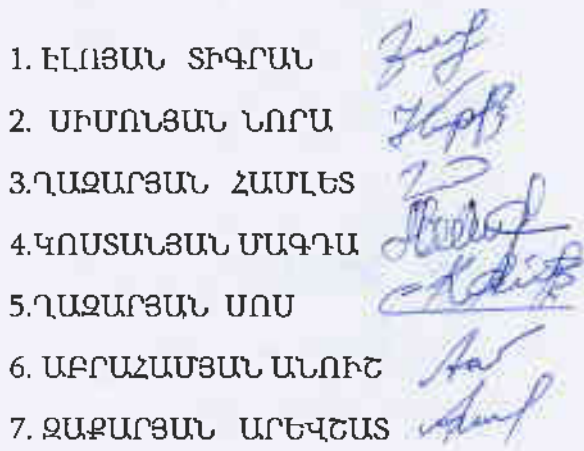 1. ԷԼՈՅԱՆ ՏԻԳՐԱՆ
2. ՍԻՄՈՆՅԱՆ ՆՈՐԱ
3.ՂԱԶԱՐՅԱՆ ՀԱՄԼԵՏ
4.ԿՈՍՏԱՆՅԱՆ ՄԱԳԴԱ
5.ՂԱԶԱՐՅԱՆ ՍՈՍ
6. ԱԲՐԱՀԱՄՅԱՆ ԱՆՈՒՇ
7. ԶԱՔԱՐՅԱՆ ԱՐԵՎՇԱՏ